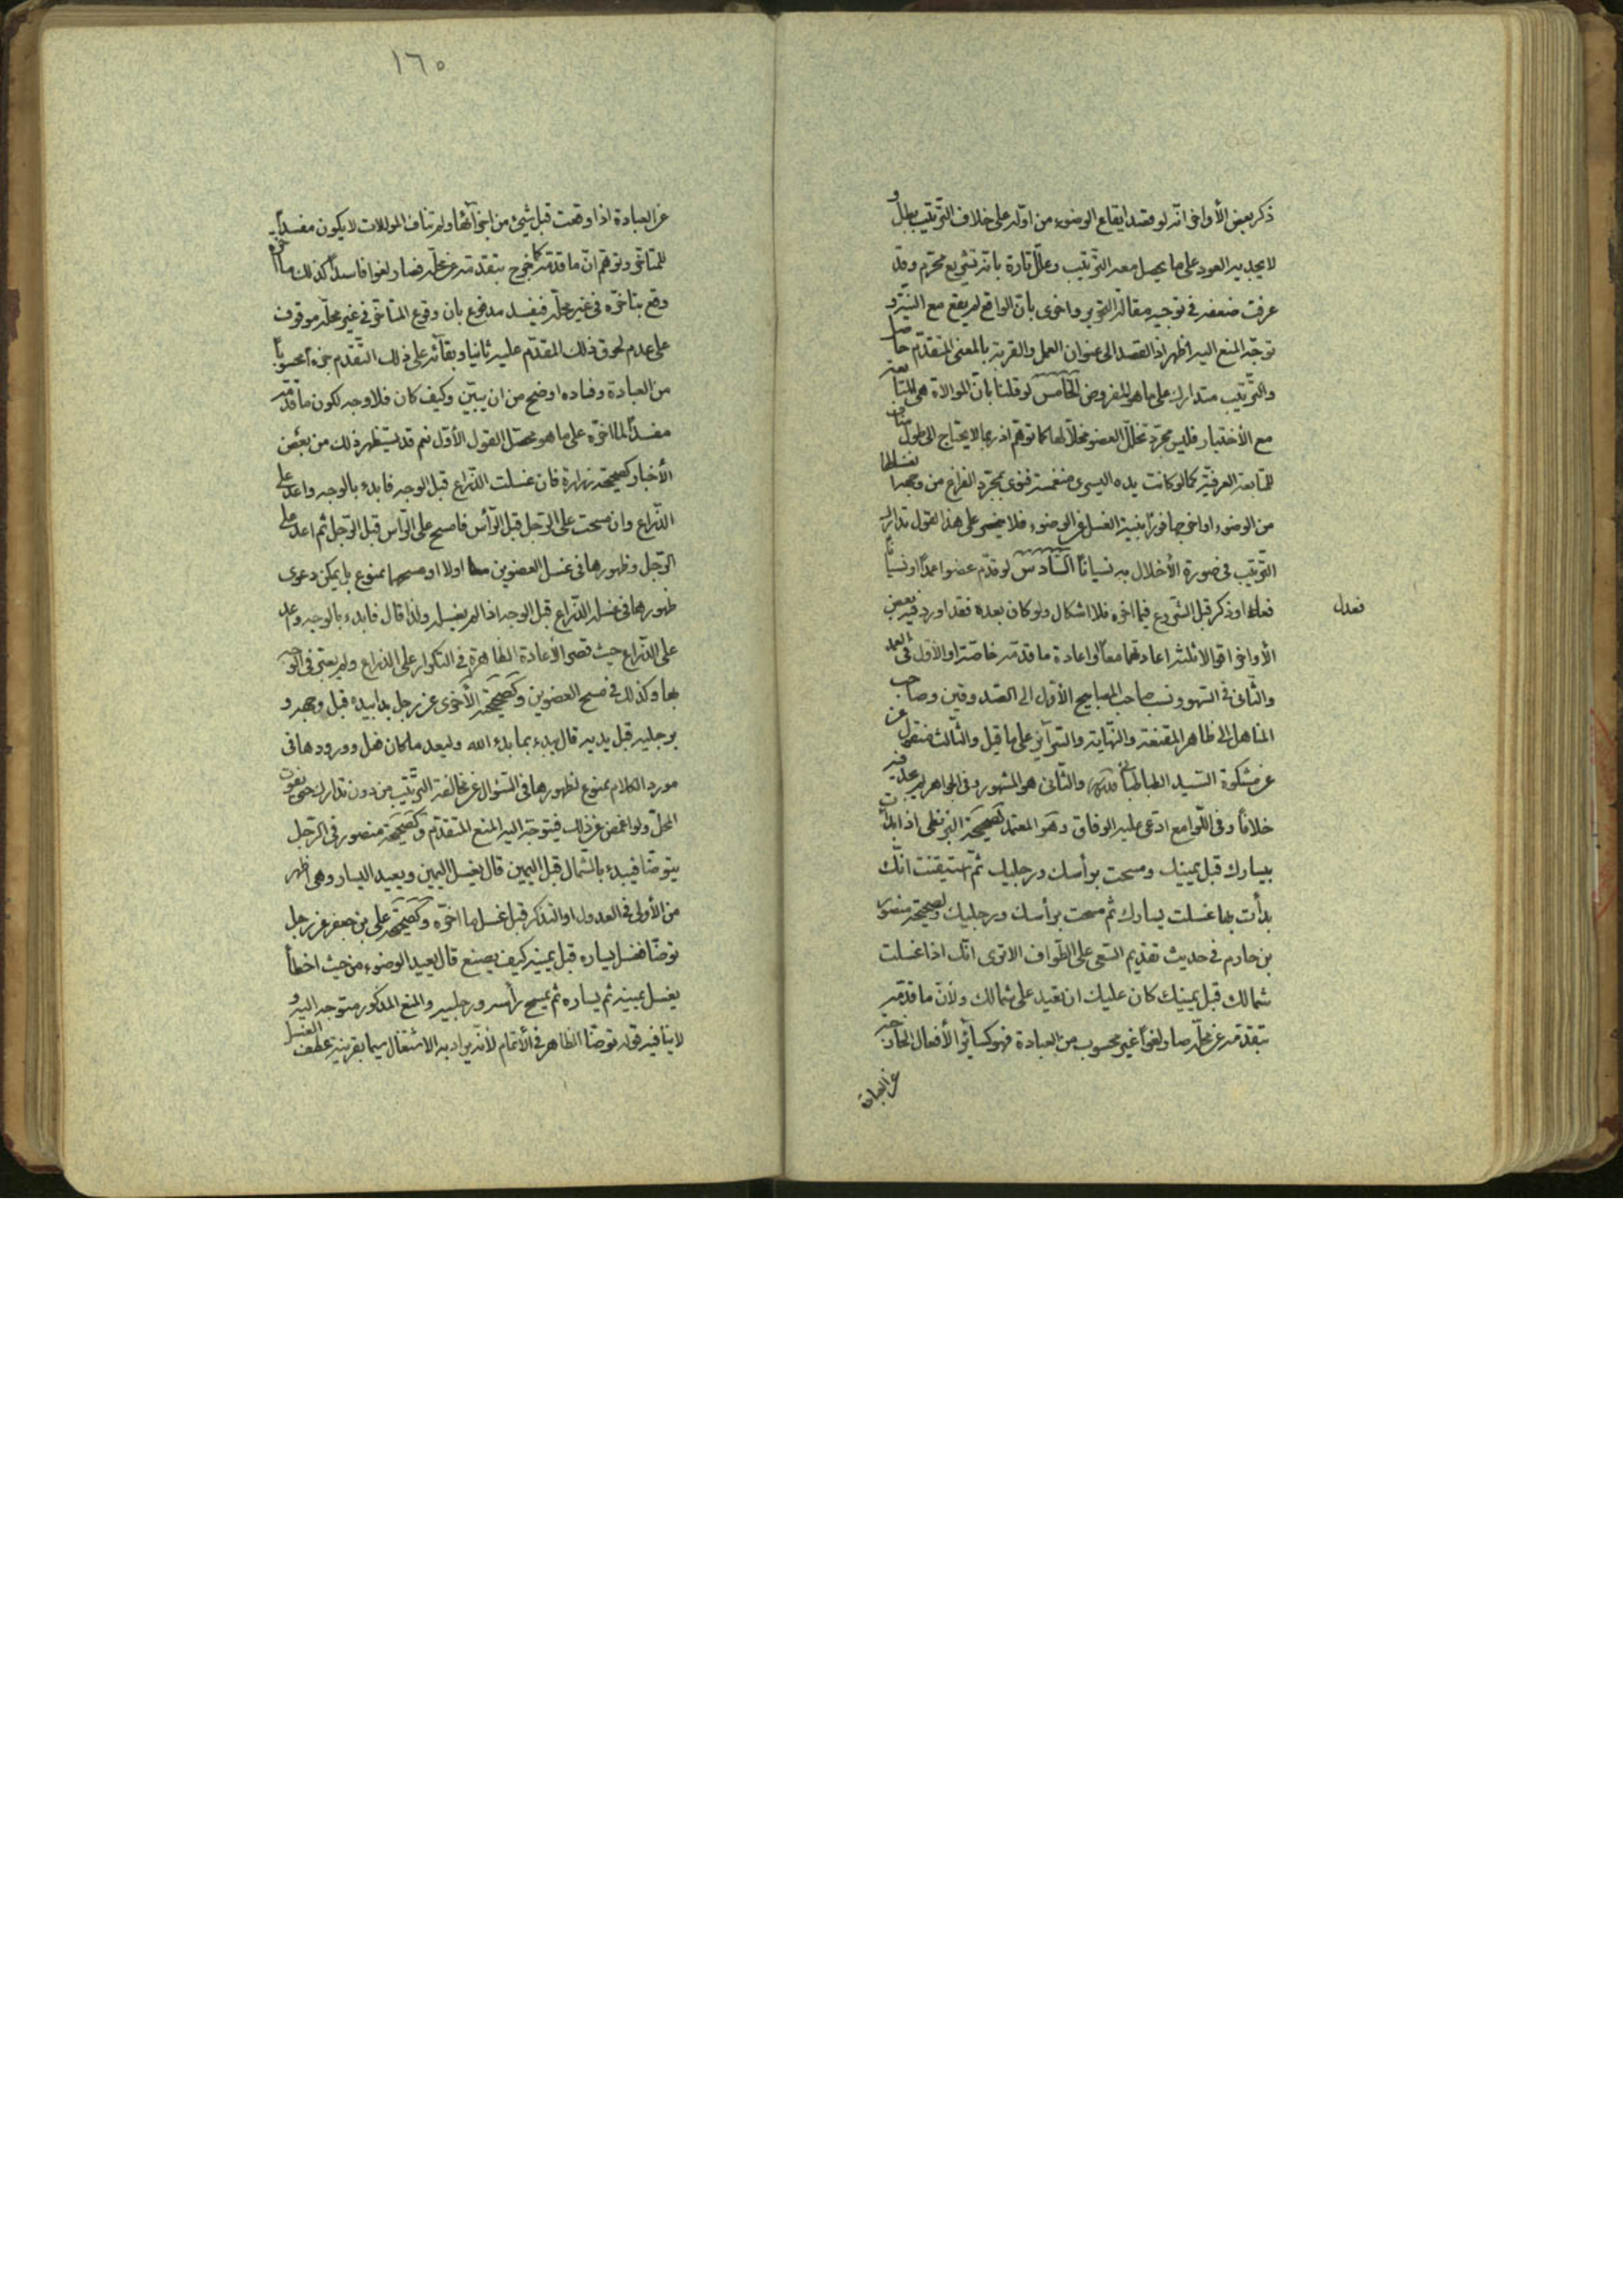 ذكر بعض الأواخر انّه لو قصد ايقاع الوضوء من اوّله على خلاف الترتيب بطل و
لا يجديه العود على ما يحصل معه الترتيب وعلّل تارة بانّه تشريع محرّم وقد
عرفت ضعفه في توجيه مقالة التحرير واخرى بانّ الواقع لم يقع مع النيّة و
توجّه المنع اليه اظهر اذ القصد الى عنوان العمل والقربة بالمعنى المتقدّم حاصل
والترتيب متدارك على ما هو المفروض الخامس لو قلنا بانّ الموالاة هي المتابعة
مع الأختيار فليس مجرّد تخلّل العضو مخلّا لها كما توهّم اذ ربما لا يحتاج الى طول مناف
للمتابعة العرفيّة كما لو كانت يده اليسرى منغمسة فنوى بمجرد الفراغ من وجهه غسلها
من الوضوء او اخرجها فورًا بنيّة الغسل في الوضوء فلا يخفى على هذا القول تدارك
الترتيب في صورة الأخلال به نسيانًا السّادس لو قدّم عضوا عمدًا او نسيانًا
فعدل او ذكر قبل الشروع فيما اخره فلا اشكال ولو كان بعده فقد اورد فيه بعض
فعدل
الأواخر اقوالا ثلثة اعادتهما معًا واعادة ما قدّمه خاصّة او الأوّل في العمد
والثّاني في السهو ونسب صاحب المصابيح الأول الى الصّدوقين وصاحب
المناهل الى ظاهر المقنعة والنّهاية والسّرآئر على ما قيل والثّالث منقول عن
عن مشكوة السّيد الطباطبائي والثّاني هو المشهور وفي الجواهر لم يجد فيه
خلافًا وفي اللّوامع ادّعى عليه الوفاق وهو المعتمد لصحيحة البزنطي اذا بدأت
بيسارك قبل يمينك ومسحت برأسك ورجليك ثمّ استيقنت انّك
بدأت بها غسلت يسارك ثم مسحت برأسك ورجليك ولصحيحة منصور
بن حازم في حديث تقديم السّعي على الطّواف الا ترى انّك اذا غسلت
شمالك قبل يمينك كان عليك ان تعيد على شمالك ولأنّ ما قدّمه
بتقدّمه عن محلّه صار لغوًا غير محسوب من العبادة فهو كسآئر الأفعال الخارجة
عن العبادة
١٦٥
عن العبادة اذا وقعت قبل شيئ من اجزآئها ولم تناف الموالات لا يكون مفسدًا
للمتأخر وتوهّم انّ ما قدّمه كما خرج بتقدّمه عن محلّه فصار لغوا فاسدًا كذلك ما اخره
وقع بتأخّره في غير محلّه فيفسد مدفوع بان وقوع المتأخر في غير محلّه موقوف
على عدم لحوق ذلك المقدّم عليه ثانيا وبقآئه على ذلك التّقدم جزءا محسوبًا
من العبادة وفساده اوضح من ان يبيّن وكيف كان فلا وجه لكون ما قدّمه
مفسدًا لما اخّره على ما هو محصّل القول الأوّل نعم قد يستظهر ذلك من بعض
الأخبار كصحيحة زرارة فان غسلت الذّراع قبل الوجه فابدء بالوجه واعد على
الذّراع وان مسحت على الرّجل قبل الرّأس فامسح على الرّأس قبل الرّجل ثم اعد على
الرّجل وظهورها في غسل العضوين اولا او مسحهما ممنوع بل يمكن دعوى
ظهورها في غسل الذّراع قبل الوجه اذا لم يغسله ولذا قال فابدء بالوجه وعد
على الذّراع حيث قصر الأعادة الظّاهرة في التكرار على الذراع ولم يعبّر في الوجه
بها وكذلك في مسح العضوين وكصحيحة الأخرى عن رجل بدا بيده قبل وجهه و
برجليه قبل يديه قال يبدء بما بدء الله وليعد ما كان فعل وورودها في
مورد الكلام ممنوع لظهورها في السّئوال عن مخالفة التّرتيب من دون تدارك حتى يفوت
المحلّ ولو اغمض عن ذلك فيتوجّه اليه المنع المتقدّم وكصحيحة منصور في الرّجل
يتوضّأ فيبدء بالشّمال قبل اليمين قال يغسل اليمين ويعيد اليسار وهي اظهر
من الأولى في العدول او التذكر قبل غسل ما اخّره وكصحيحة على بن جعفر عن رجل
توضّأ فغسل يساره قبل يمينه كيف يصنع قال يعيد الوضوء من حيث اخطأ
يغسل يمينه ثم يساره ثم يمسح رأسه ورجليه والمنع المذكور متوجه اليه و
لا ينافيه قوله توضّأ الظاهر في الأتمام لأنّه يراد به الاشتغال سيما بقرينة عطف الغسل